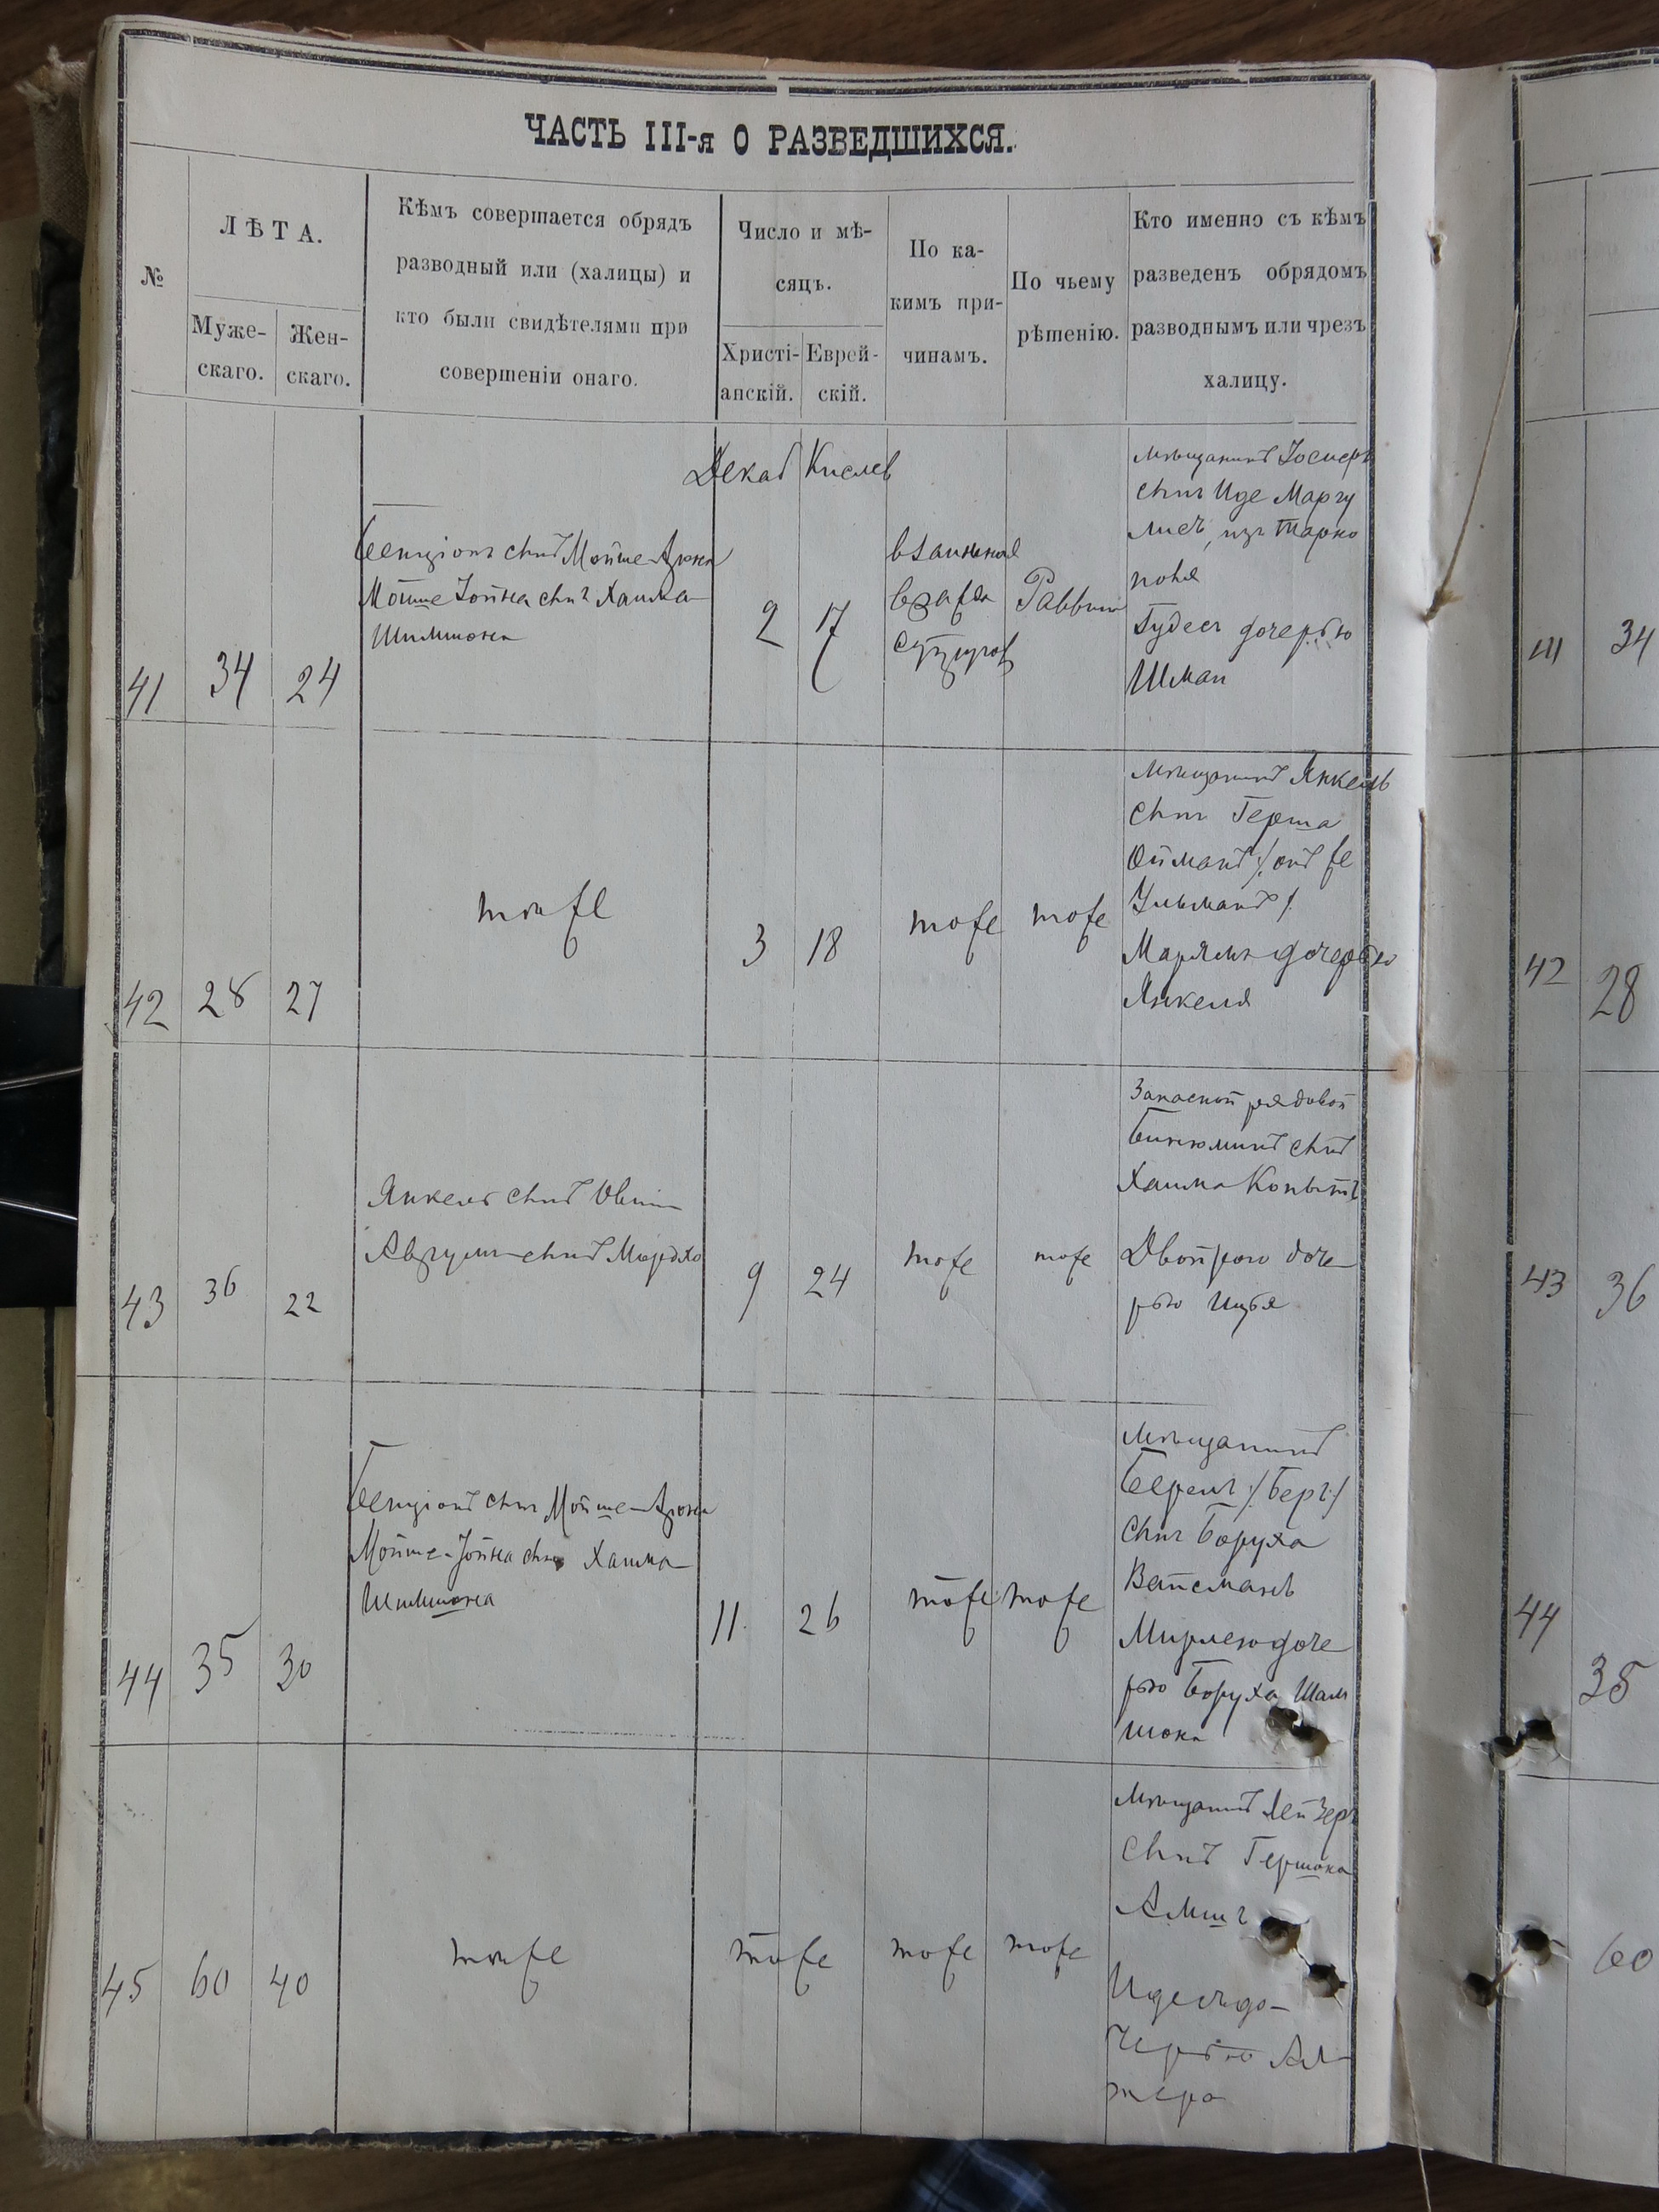 ЧАСТЬ III-я О РАЗВЕДШИХСЯ.
№
ЛѢТА.
Муже-
скаго.
Жен-
скаго.
Кѣмъ совершается обрядъ
разводный или (халицы) и
кто были свидѣтелями при
совершеніи онаго.
Число и мѣ-
сяцъ.
Христі-
анскій.
Еврей-
скій.
По ка-
кимъ при-
чинамъ.
По чьему
рѣшенію.
Кто именно съ кѣмъ
разведенъ обрядомъ
разводнымъ или чрезъ
халицу.
Декаб Кислев
41 34 24
Бенціонъ сынъ Мойше-Арона
Мойше Іойна сынъ Хаима
Шимшона
2 17
взаимная
вражда
супруговъ
Раввин
мѣщанинъ
сынъ Иде Маргу
лисъ, изъ Тарно
поля
Гудесъ дочерью
Шмаи
42 28 27
тоже
3 18
тоже тоже
мѣщанинъ Янкель
сынъ Герша
Ойманъ /онъ же
Ульманъ/
Марьямъ дочерью
Янкеля
43 36 22
Янкель сынъ
Аврумъ сынъ Мордко
9 24
тоже тоже
Запасной рядовой
Бинюминъ сынъ
Хаима Копытъ
Двойрою доче
рью Ицья
44 35 30
Бенціонъ сынъ Мойше-Арона
Мойше-Іойна сынъ Хаима
Шимшона
11 26
тоже тоже
мѣщанинъ
Берель /Беръ/
сынъ Боруха
Вайсманъ
Мирлею доче
рью Боруха Шим
шона
45 60 40
тоже
тоже
тоже тоже
мѣщанинъ Лейзеръ
сынъ Гершона
Идесъ до-
черью Ал-
тера
41 34
42 28
43 36
44 35
60